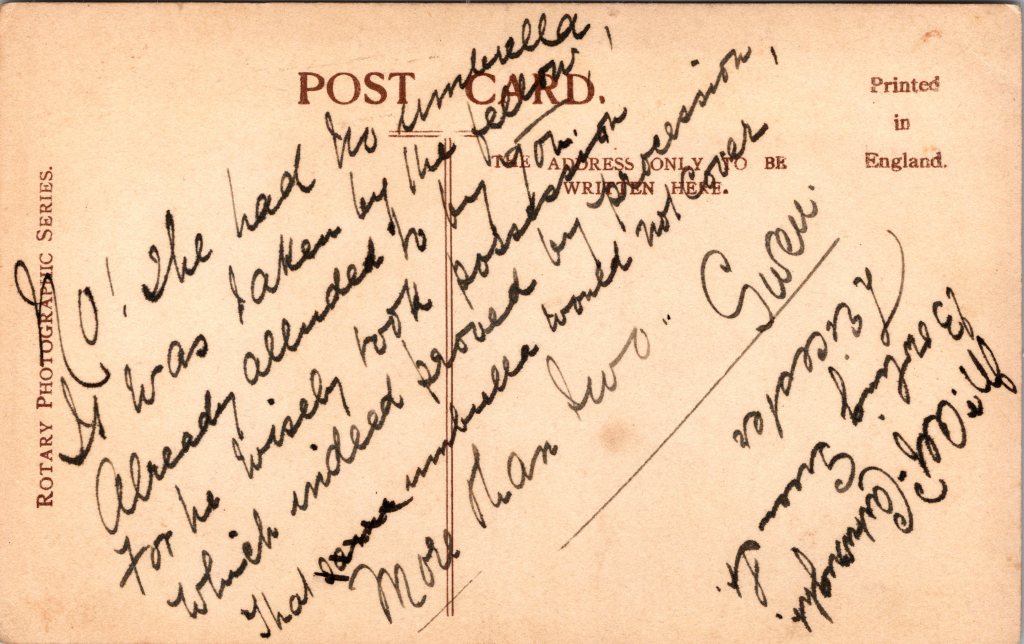 POST CARD.
THE ADDRESS ONLY TO BE
WRITTEN HERE.
Printed
in
England.
ROTARY PHOTOGRAPHIC SERIES.
No! She had no umbrella,
It was taken by the fellow
Already alluded to by you.
For he wisely took possession
Which indeed proved by procession,
That same umbrella would not cover
More than two"
Gwen.
Cartwright
St
Leicester